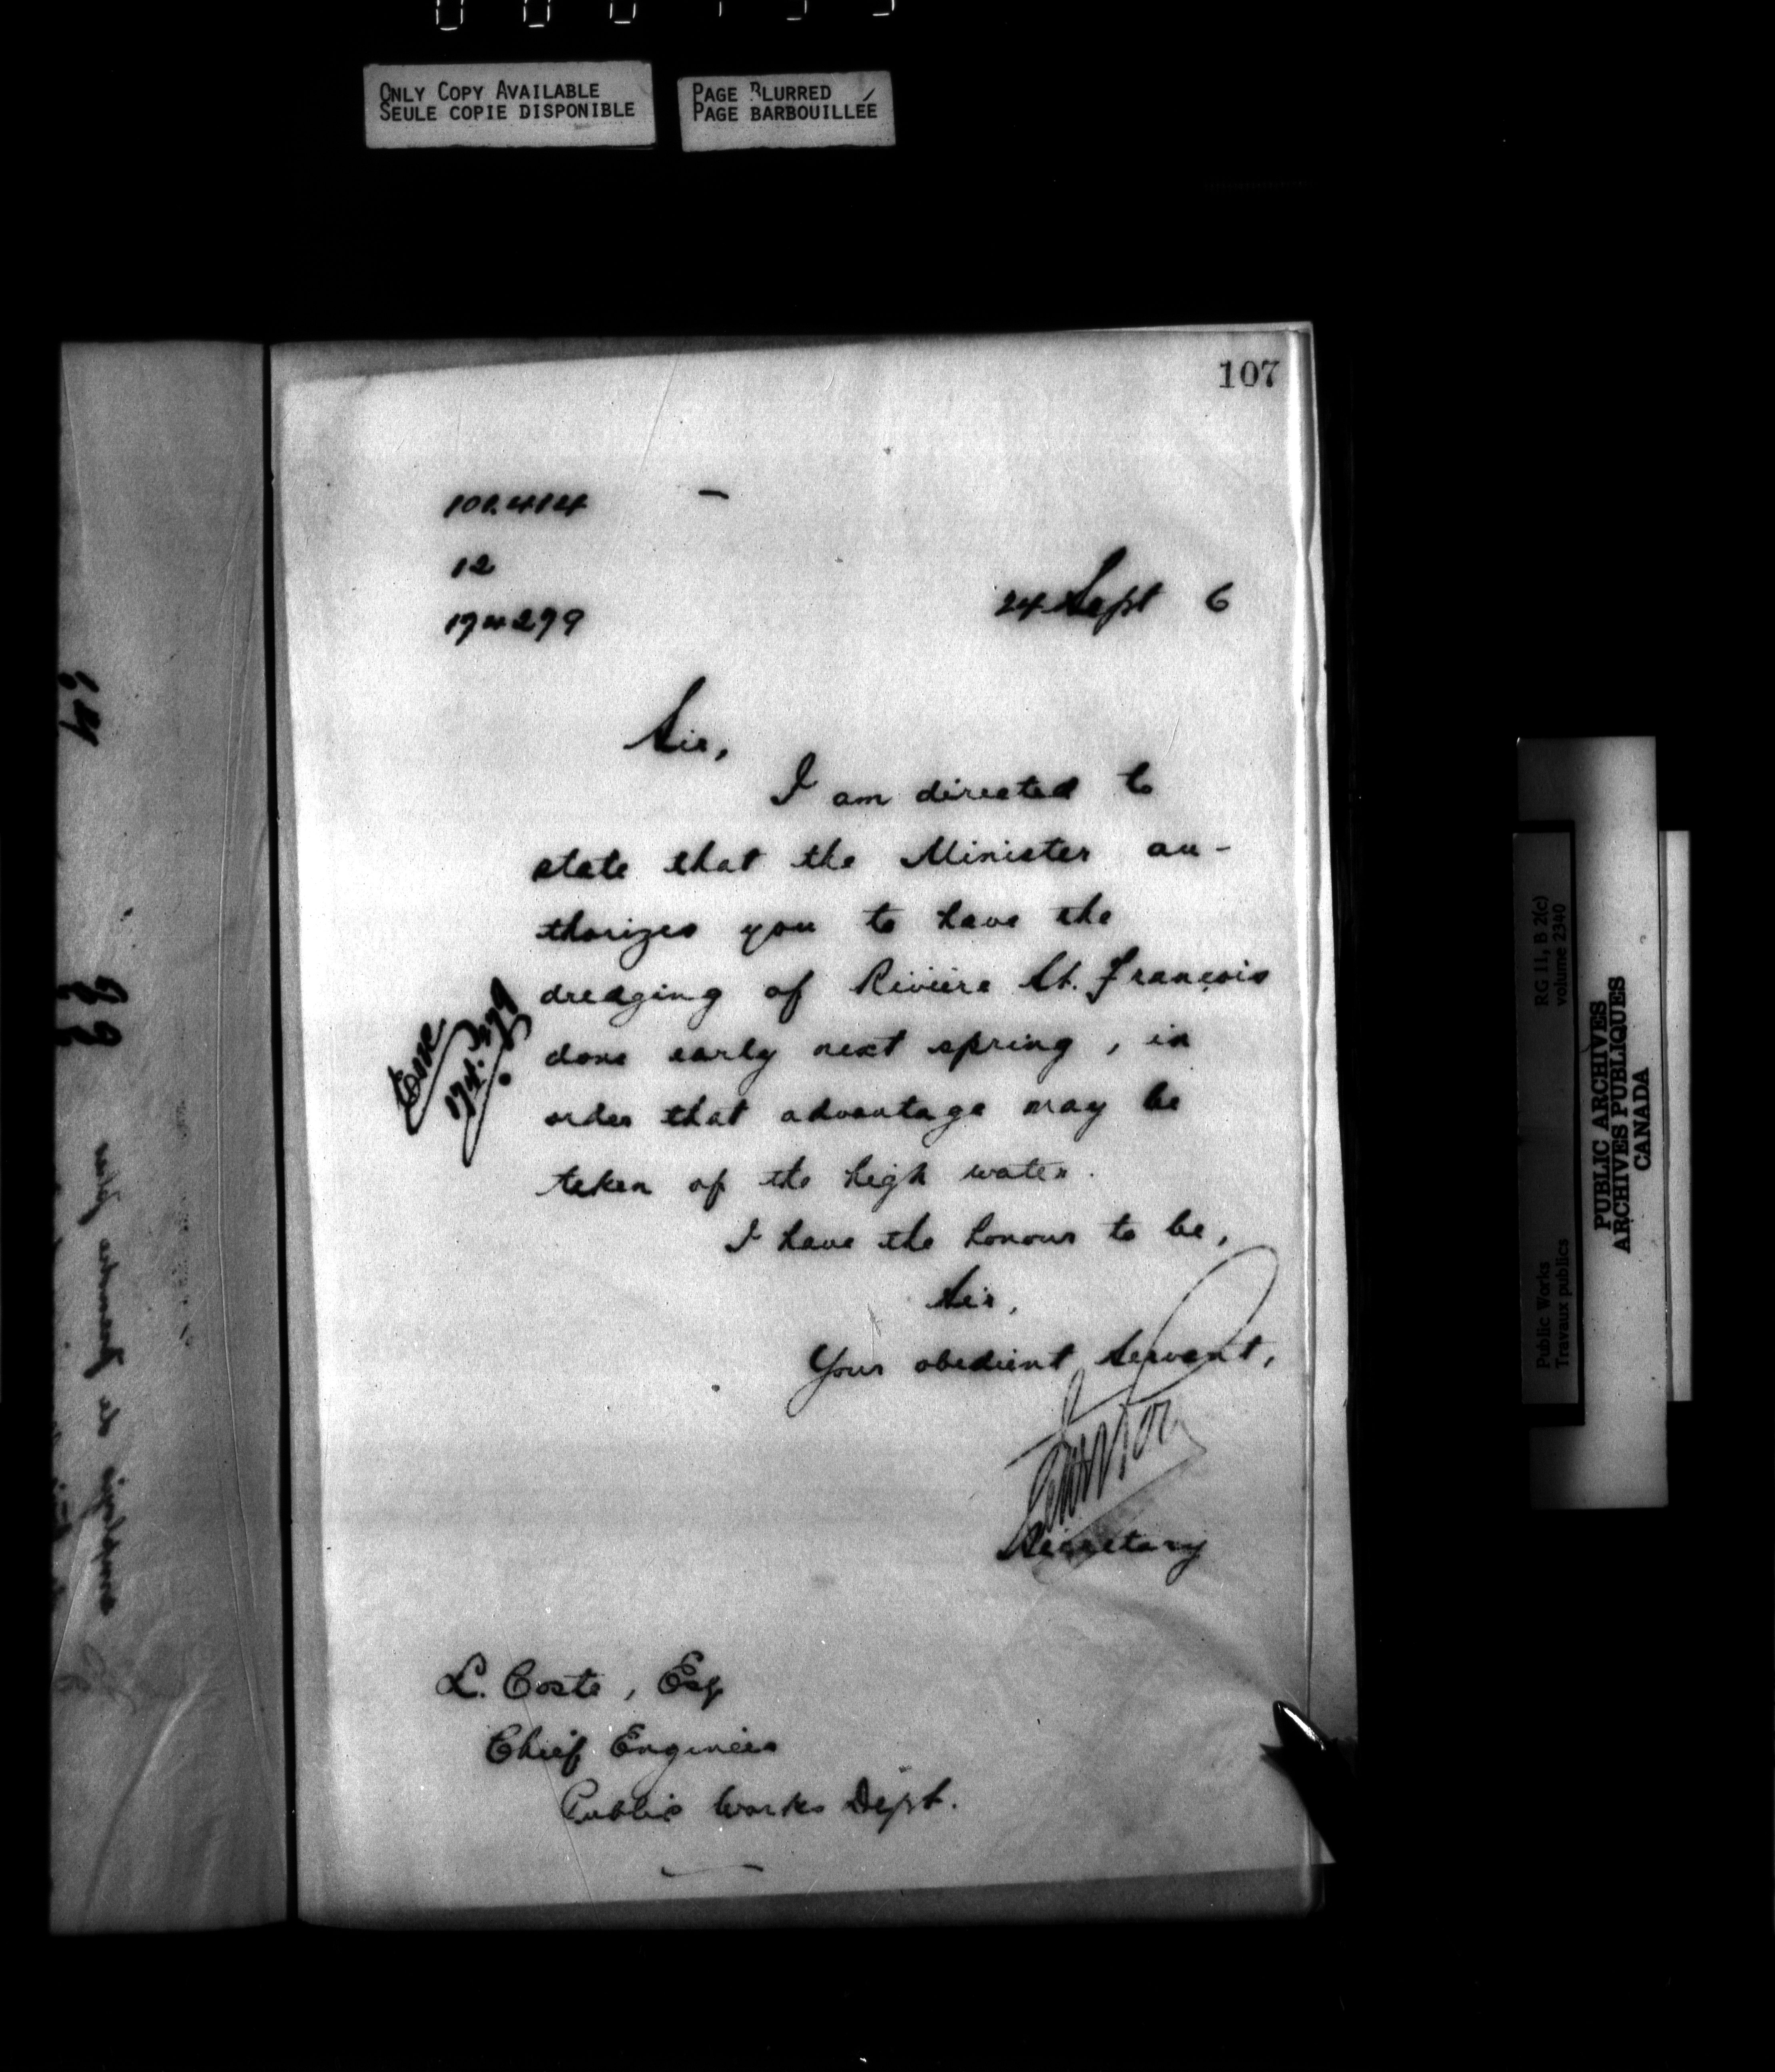 ONLY COPY AVAILABLE
SEULE COPIE DISPONIBLE
PAGE BLURRED
PAGE BARBOUILLÉE
107
101.414
12
174279
24 Sept 6
Sir,
I am directed to
state that the Minister au-
thorizes you to have the
dredging of Rivière St. François
done early next spring, in
order that advantage may be
taken of the high water.
I have the honour to be,
Sir,
Your obedient Servant,
Secretary
L. Coste, Esq
Chief Engineer
Public Works Dept.
Public Works
Travaux publics
RG 11, B 2(c)
volume 2340
PUBLIC ARCHIVES
ARCHIVES PUBLIQUES
CANADA